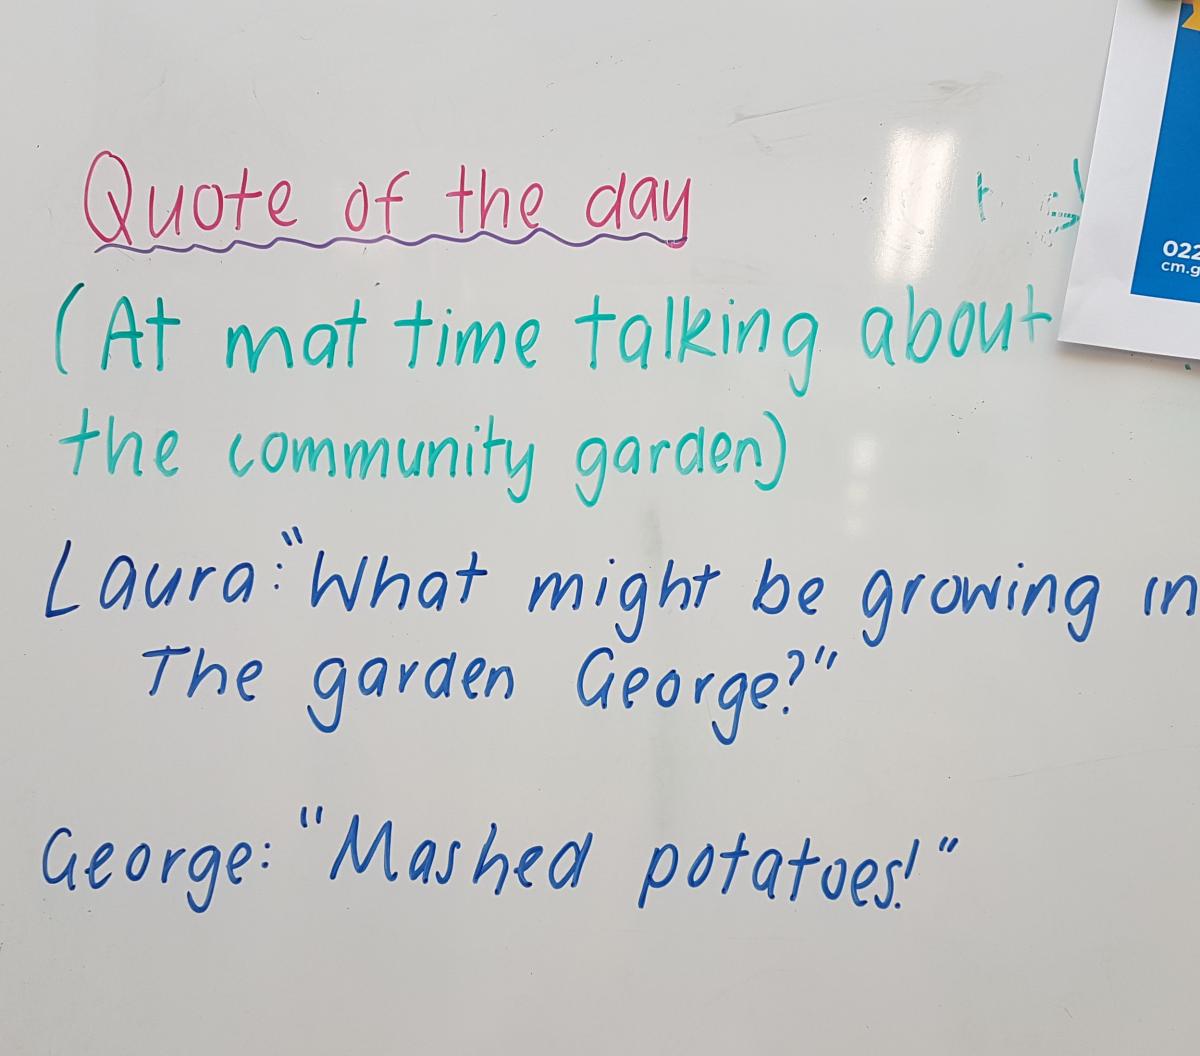 Quote of the day
(At mat time talking about
the community garden)
Laura: "What might be growing in
The garden George?"
George: "Mashed potatoes!"
022
cm.g